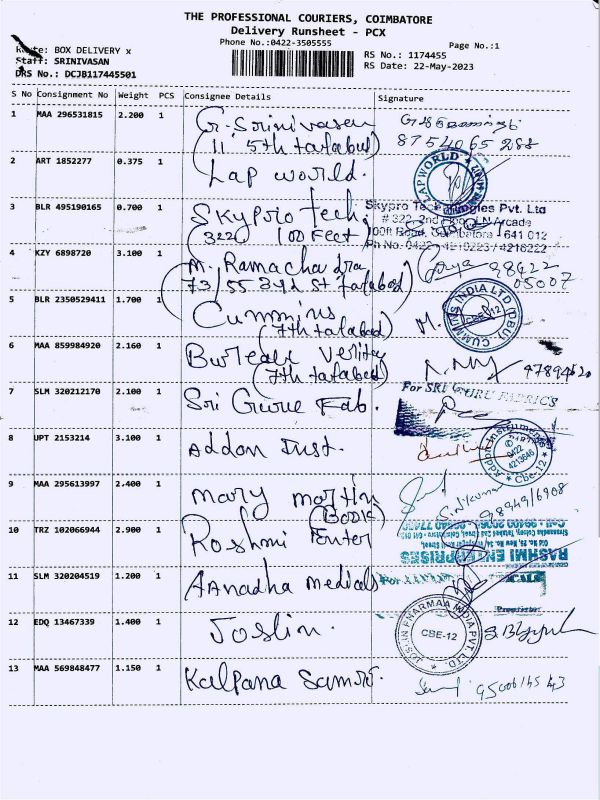 THE PROFESSIONAL COURIERS, COIMBATORE
Delivery Runsheet - PCX
Phone No.:0422-3505555
Page No.:1
Route: BOX DELIVERY x
Staff: SRINIVASAN
DRS No.: DCJB117445501
RS No.: 1174455
RS Date: 22-May-2023
S No Consignment No Weight PCS Consignee Details Signature
1 MAA 296531815 2.200 1 G. Srinivasen
(11, 5th tatabad)
87540 65288
2 ART 1852277 0.375 1 Lap world.
LAP WORLD
3 BLR 495190165 0.700 1 Skypro Tech.
(322 100 Feet)
Skypro Technologies Pvt. Ltd
# 322, 2nd Floor, Arcade
100ft Road, Coimbatore - 641 012
Ph No. 0422 - 4210223 / 4216222
4 KZY 6898720 3.100 1 M. Ramachadra
(73/55 3rd st tatabad)
98422
05007
5 BLR 2350529411 1.700 1 Cummins
(7th tatabad)
CUMMINS INDIA LTD (DBU)
CBE-12
6 MAA 859984920 2.160 1 Bureau Verity
(7th tatabad)
7 SLM 320212170 2.100 1 Sri Gurue Fab.
For SRI GURU FABRICS
8 UPT 2153214 3.100 1 Addon Inst.
Addon Instruments
0422
4213646
Cbe-12
9 MAA 295613997 2.400 1 Mary martin
(Book)
10 TRZ 102066944 2.900 1 Roshmi Enter
RASHMI ENTERPRISES
11 SLM 320204519 1.200 1 Aanadha medicals
For
Proprietor
12 EDQ 13467339 1.400 1 Joslin.
PHARMAA INDIA PVT. LTD.
CBE-12
13 MAA 569848477 1.150 1 Kalpana Samsri.